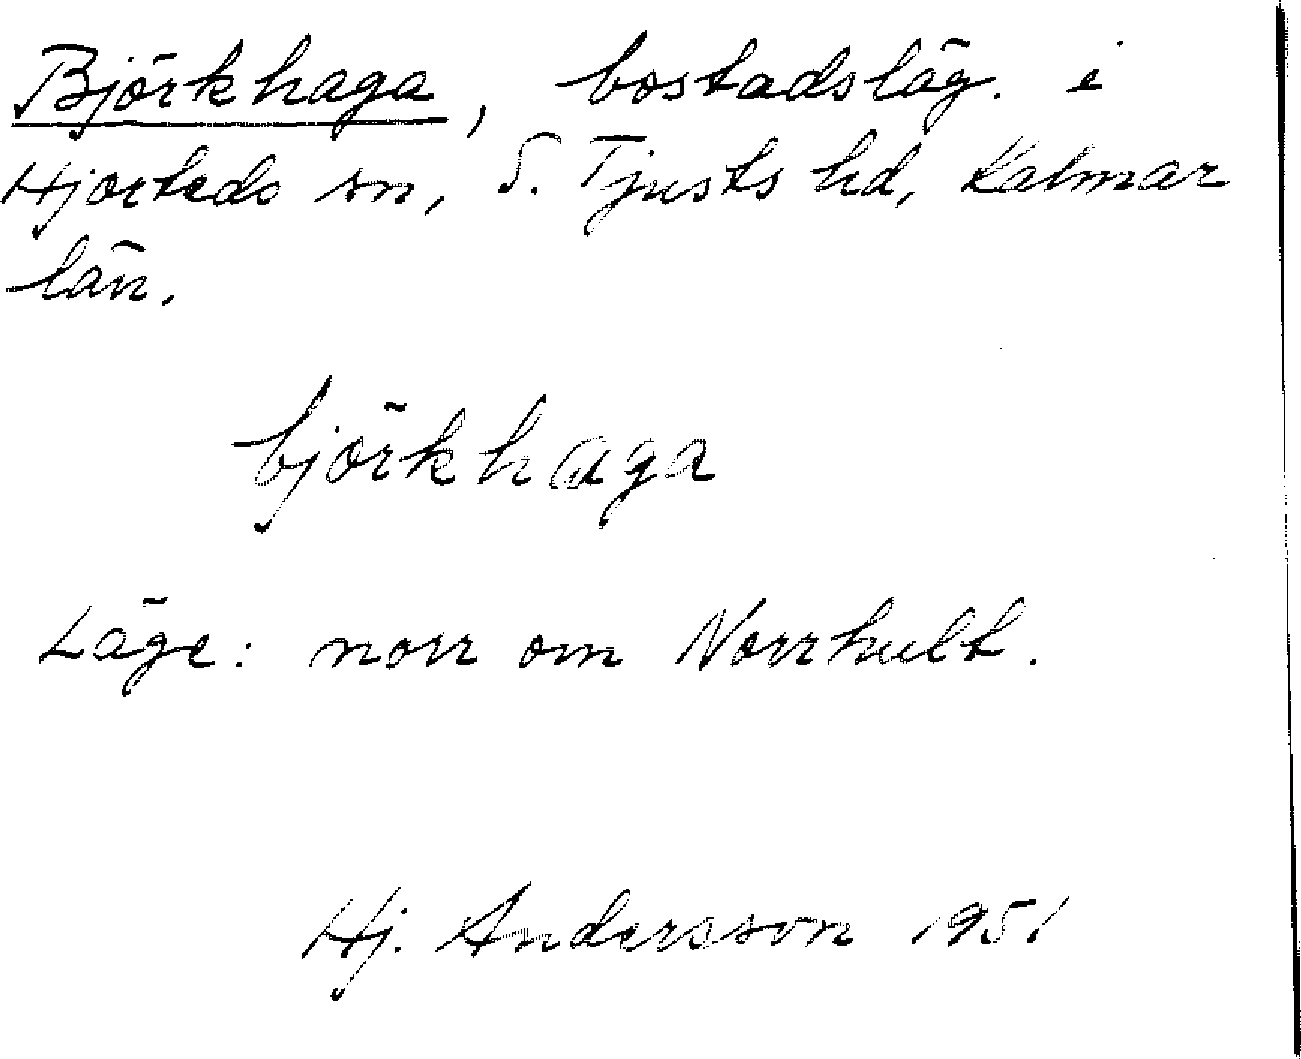 Björkhaga, bostadsläg. i
Hjorteds sn, S. Tjusts hd, Kalmar
län.
björkhaga
Läge: norr om Norrhult.
Hj. Andersson 1951